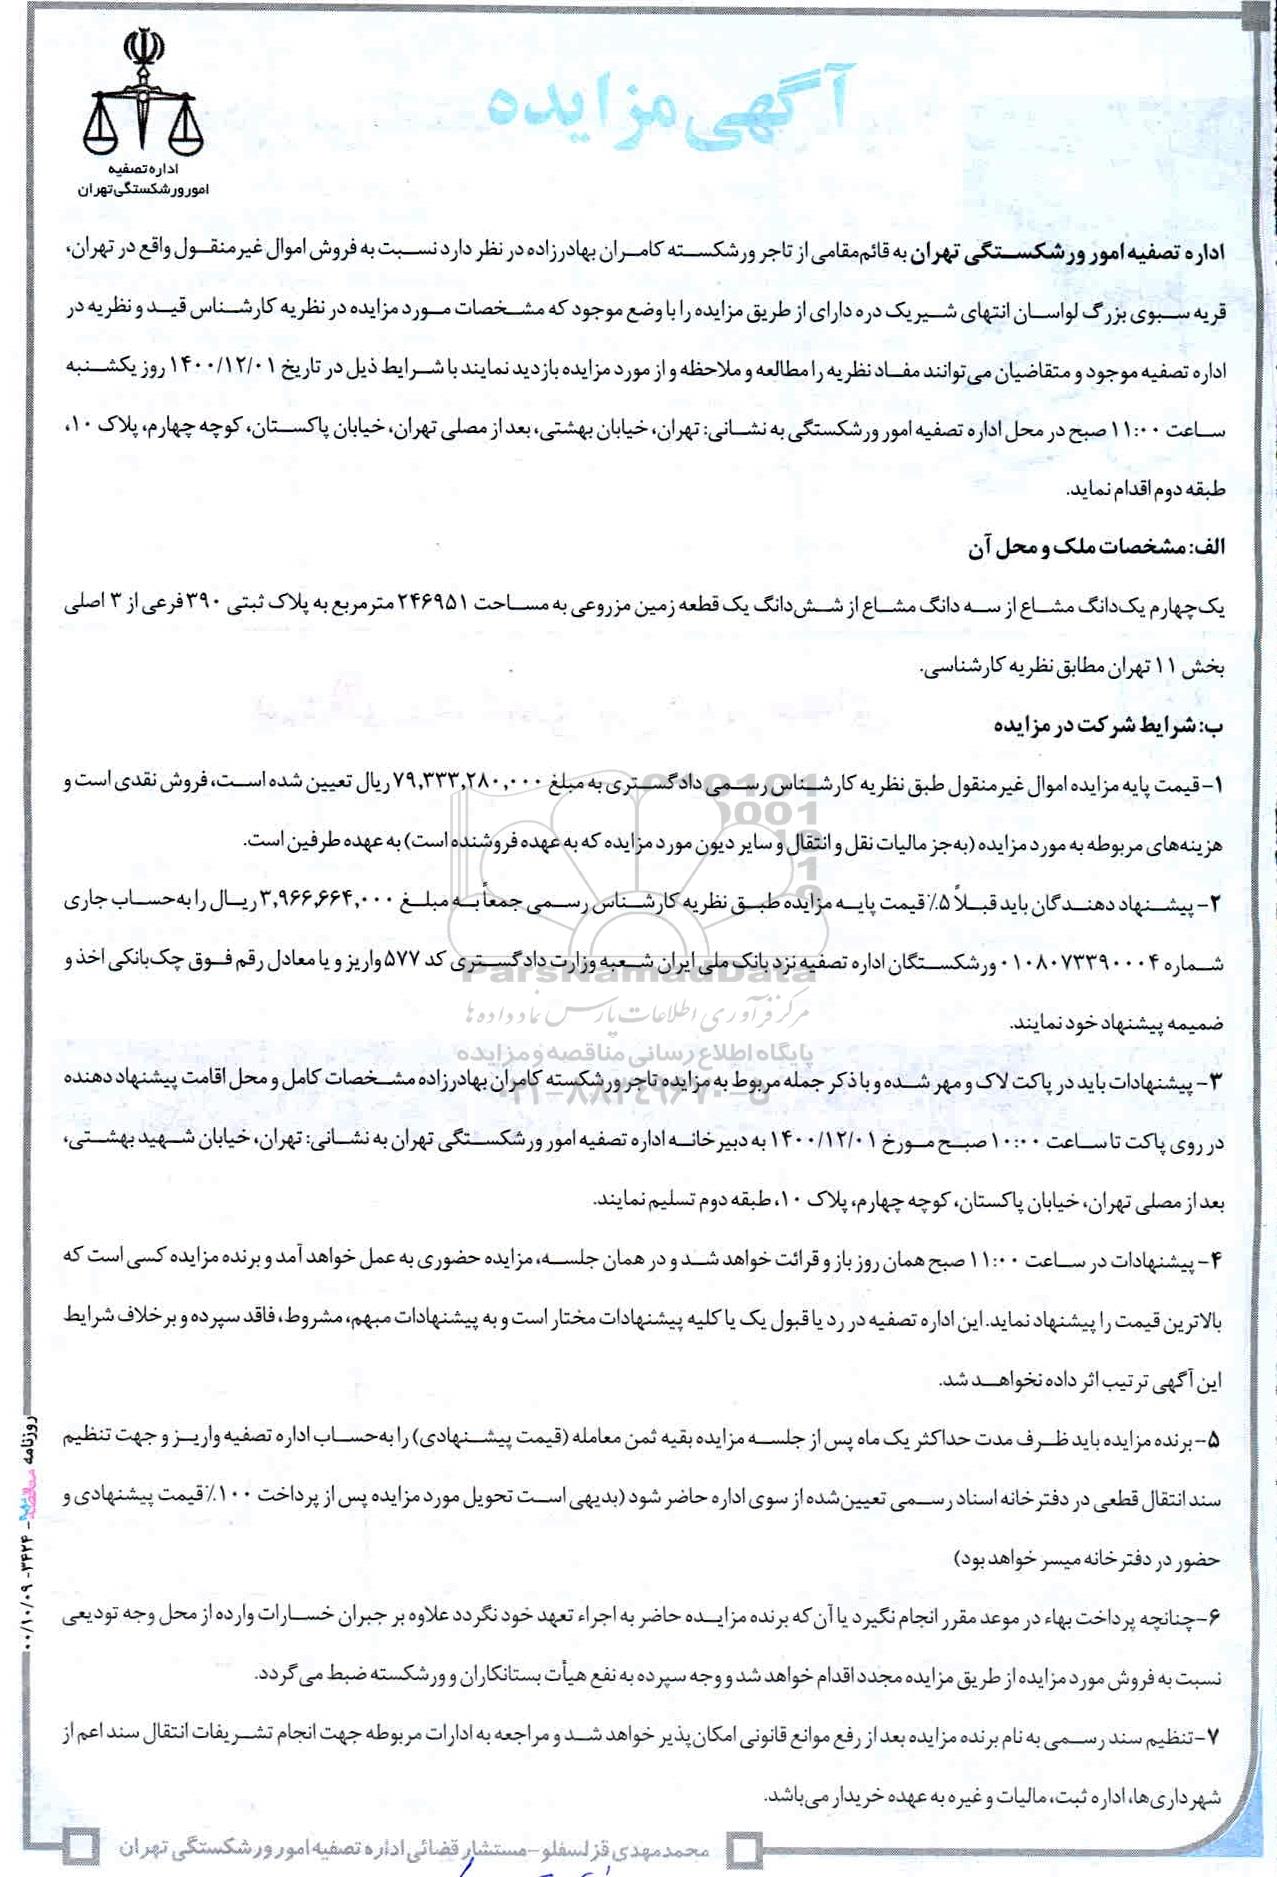 آگهی مزایده
اداره تصفیه
امور ورشکستگی تهران
اداره تصفیه امور ورشکستگی تهران به قائم‌مقامی از تاجر ورشکسته کامران بهادرزاده در نظر دارد نسبت به فروش اموال غیرمنقول واقع در تهران،
قریه سبوی بزرگ لواسان انتهای شیریک دره دارای از طریق مزایده را با وضع موجود که مشخصات مورد مزایده در نظریه کارشناس قید و نظریه در
اداره تصفیه موجود و متقاضیان می‌توانند مفاد نظریه را مطالعه و ملاحظه و از مورد مزایده بازدید نمایند با شرایط ذیل در تاریخ ۱۴۰۰/۱۲/۰۱ روز یکشنبه
ساعت ۱۱:۰۰ صبح در محل اداره تصفیه امور ورشکستگی به نشانی: تهران، خیابان بهشتی، بعد از مصلی تهران، خیابان پاکستان، کوچه چهارم، پلاک ۱۰،
طبقه دوم اقدام نماید.
الف: مشخصات ملک و محل آن
یک‌چهارم یک‌دانگ مشاع از سه دانگ مشاع از شش‌دانگ یک قطعه زمین مزروعی به مساحت ۲۴۶۹۵۱ مترمربع به پلاک ثبتی ۳۹۰ فرعی از ۳ اصلی
بخش ۱۱ تهران مطابق نظریه کارشناسی.
ب: شرایط شرکت در مزایده
۱- قیمت پایه مزایده اموال غیرمنقول طبق نظریه کارشناس رسمی دادگستری به مبلغ ۷۹,۳۳۳,۲۸۰,۰۰۰ ریال تعیین شده است، فروش نقدی است و
هزینه‌های مربوطه به مورد مزایده (به‌جز مالیات نقل و انتقال و سایر دیون مورد مزایده که به عهده فروشنده است) به عهده طرفین است.
۲- پیشنهاد دهندگان باید قبلاً ۵٪ قیمت پایه مزایده طبق نظریه کارشناس رسمی جمعاً به مبلغ ۳,۹۶۶,۶۶۴,۰۰۰ ریال را به‌حساب جاری
شماره ۰۱۰۸۰۷۳۳۹۰۰۰۴ ورشکستگان اداره تصفیه نزد بانک ملی ایران شعبه وزارت دادگستری کد ۵۷۷ واریز و یا معادل رقم فوق چک‌بانکی اخذ و
ParsNamadData
مرکز فرآوری اطلاعات پارس نماد داده‌ها
ضمیمه پیشنهاد خود نمایند.
پایگاه اطلاع رسانی مناقصه و مزایده
۳- پیشنهادات باید در پاکت لاک و مهر شده و با ذکر جمله مربوط به مزایده تاجر ورشکسته کامران بهادرزاده مشخصات کامل و محل اقامت پیشنهاد دهنده
۰۲۱-۸۸۳۴۹۶۷۰-۵
در روی پاکت تا ساعت ۱۰:۰۰ صبح مورخ ۱۴۰۰/۱۲/۰۱ به دبیرخانه اداره تصفیه امور ورشکستگی تهران به نشانی: تهران، خیابان شهید بهشتی،
بعد از مصلی تهران، خیابان پاکستان، کوچه چهارم، پلاک ۱۰، طبقه دوم تسلیم نمایند.
۴- پیشنهادات در ساعت ۱۱:۰۰ صبح همان روز باز و قرائت خواهد شد و در همان جلسه، مزایده حضوری به عمل خواهد آمد و برنده مزایده کسی است که
بالاترین قیمت را پیشنهاد نماید. این اداره تصفیه در رد یا قبول یک یا کلیه پیشنهادات مختار است و به پیشنهادات مبهم، مشروط، فاقد سپرده و برخلاف شرایط
این آگهی ترتیب اثر داده نخواهد شد.
۵- برنده مزایده باید ظرف مدت حداکثر یک ماه پس از جلسه مزایده بقیه ثمن معامله (قیمت پیشنهادی) را به‌حساب اداره تصفیه واریز و جهت تنظیم
سند انتقال قطعی در دفترخانه اسناد رسمی تعیین‌شده از سوی اداره حاضر شود (بدیهی است تحویل مورد مزایده پس از پرداخت ۱۰۰٪ قیمت پیشنهادی و
حضور در دفترخانه میسر خواهد بود)
۶- چنانچه پرداخت بهاء در موعد مقرر انجام نگیرد یا آن‌که برنده مزایده حاضر به اجراء تعهد خود نگردد علاوه بر جبران خسارات وارده از محل وجه تودیعی
نسبت به فروش مورد مزایده از طریق مزایده مجدد اقدام خواهد شد و وجه سپرده به نفع هیأت بستانکاران و ورشکسته ضبط می‌گردد.
۷- تنظیم سند رسمی به نام برنده مزایده بعد از رفع موانع قانونی امکان‌پذیر خواهد شد و مراجعه به ادارات مربوطه جهت انجام تشریفات انتقال سند اعم از
شهرداری‌ها، اداره ثبت، مالیات و غیره به عهده خریدار می‌باشد.
محمدمهدی قزلسفلو - مستشار قضائی اداره تصفیه امور ورشکستگی تهران
روزنامه مناقصه مزایده - ۳۴۲۴ - ۰۰/۱۰/۰۹